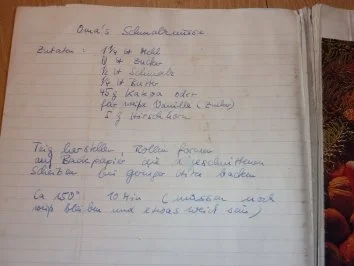 Oma's Schmalznüsse
Zutaten : 1¼ H Mehl
H Zucker
½ H Schmalz
¼ H Butter
45 g Kakao oder
für weiße Vanille (Zucker)
5 g Hirschhorn
Teig herstellen, Rollen formen
auf Backpapier die geschnittenen
Scheiben bei geringer Hitze backen
Ca 150° 10 Min (müssen noch
weiß bleiben und etwas weich sein)